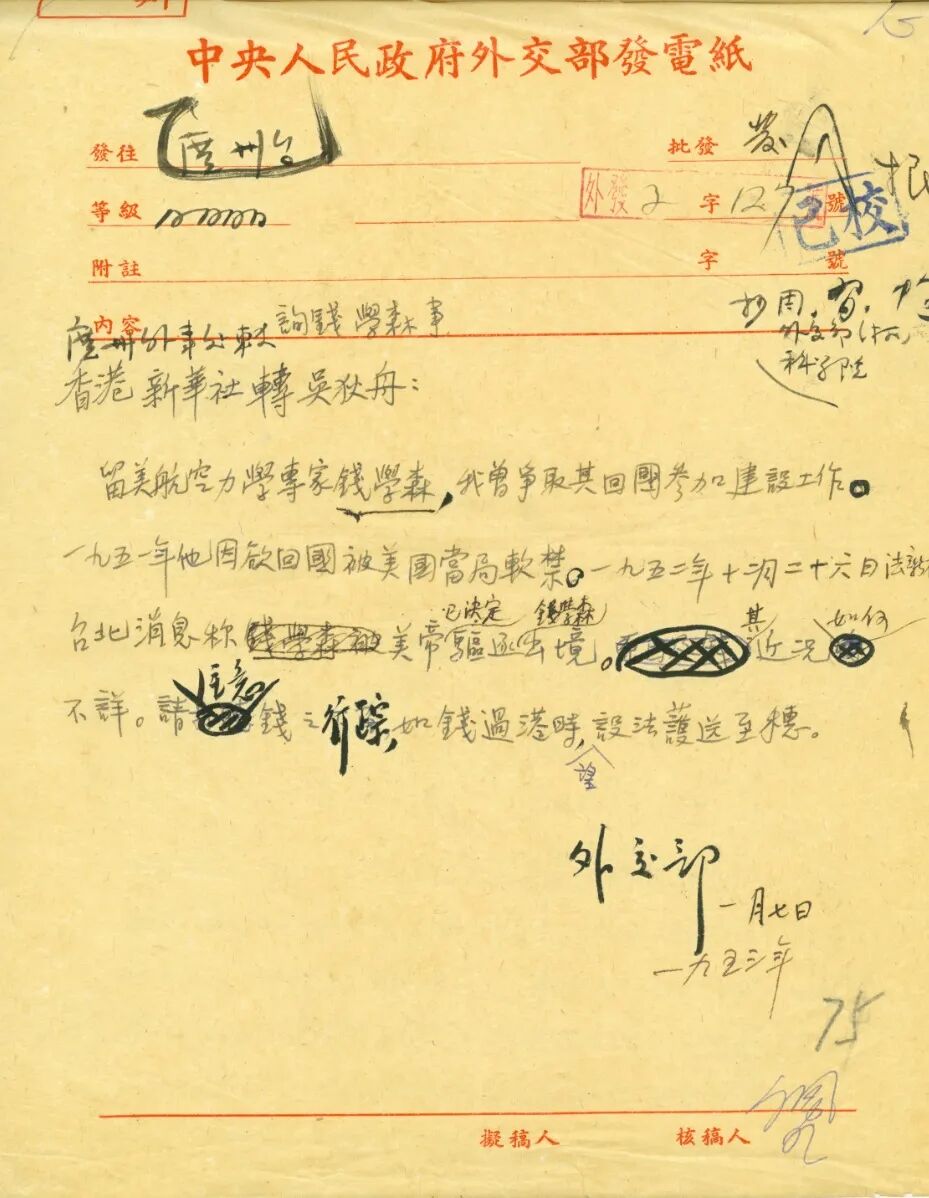 中央人民政府外交部發電紙
發往 廣州台 批發 發
等級 外發 2 字 127 號
已校
附註 字 號
內容 詢錢學森事
抄周,
外交部
科學院
廣州外事處轉
香港新華社轉吳狄舟:
留美航空力學專家錢學森,我曾爭取其回國參加建設工作。
一九五一年他因欲回國被美国當局軟禁。一九五二年十二月二十六日法新社
台北消息称美帝已決定驅逐錢學森出境。其近况如何
不詳。請注意錢之行踪,如錢過港時,望設法護送至穗。
外交部
一月七日
一九五三年
75
擬稿人 核稿人